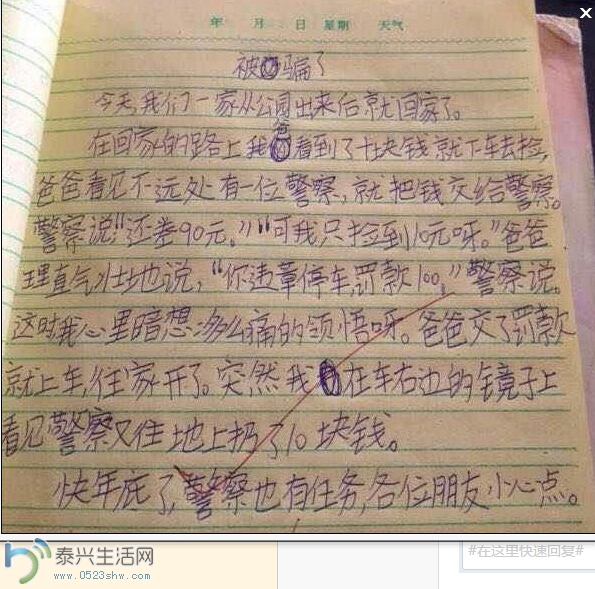 年 月 日 星期 天气
被骗了
今天,我们一家从公园出来后就回家了。
在回家的路上我爸看到了十块钱就下车去捡,
爸爸看见不远处有一位警察,就把钱交给警察。
警察说:“还差90元。”“可我只捡到10元呀。”爸爸
理直气壮地说,“你违章停车,罚款100,”警察说。
这时我心里暗想:多么痛的领悟呀。爸爸交了罚款
就上车,往家开了。突然我在车右边的镜子上
看见警察又往地上扔了10块钱。
快年底了,警察也有任务,各位朋友小心点。
泰兴生活网
www.0523shw.com
#在这里快速回复#